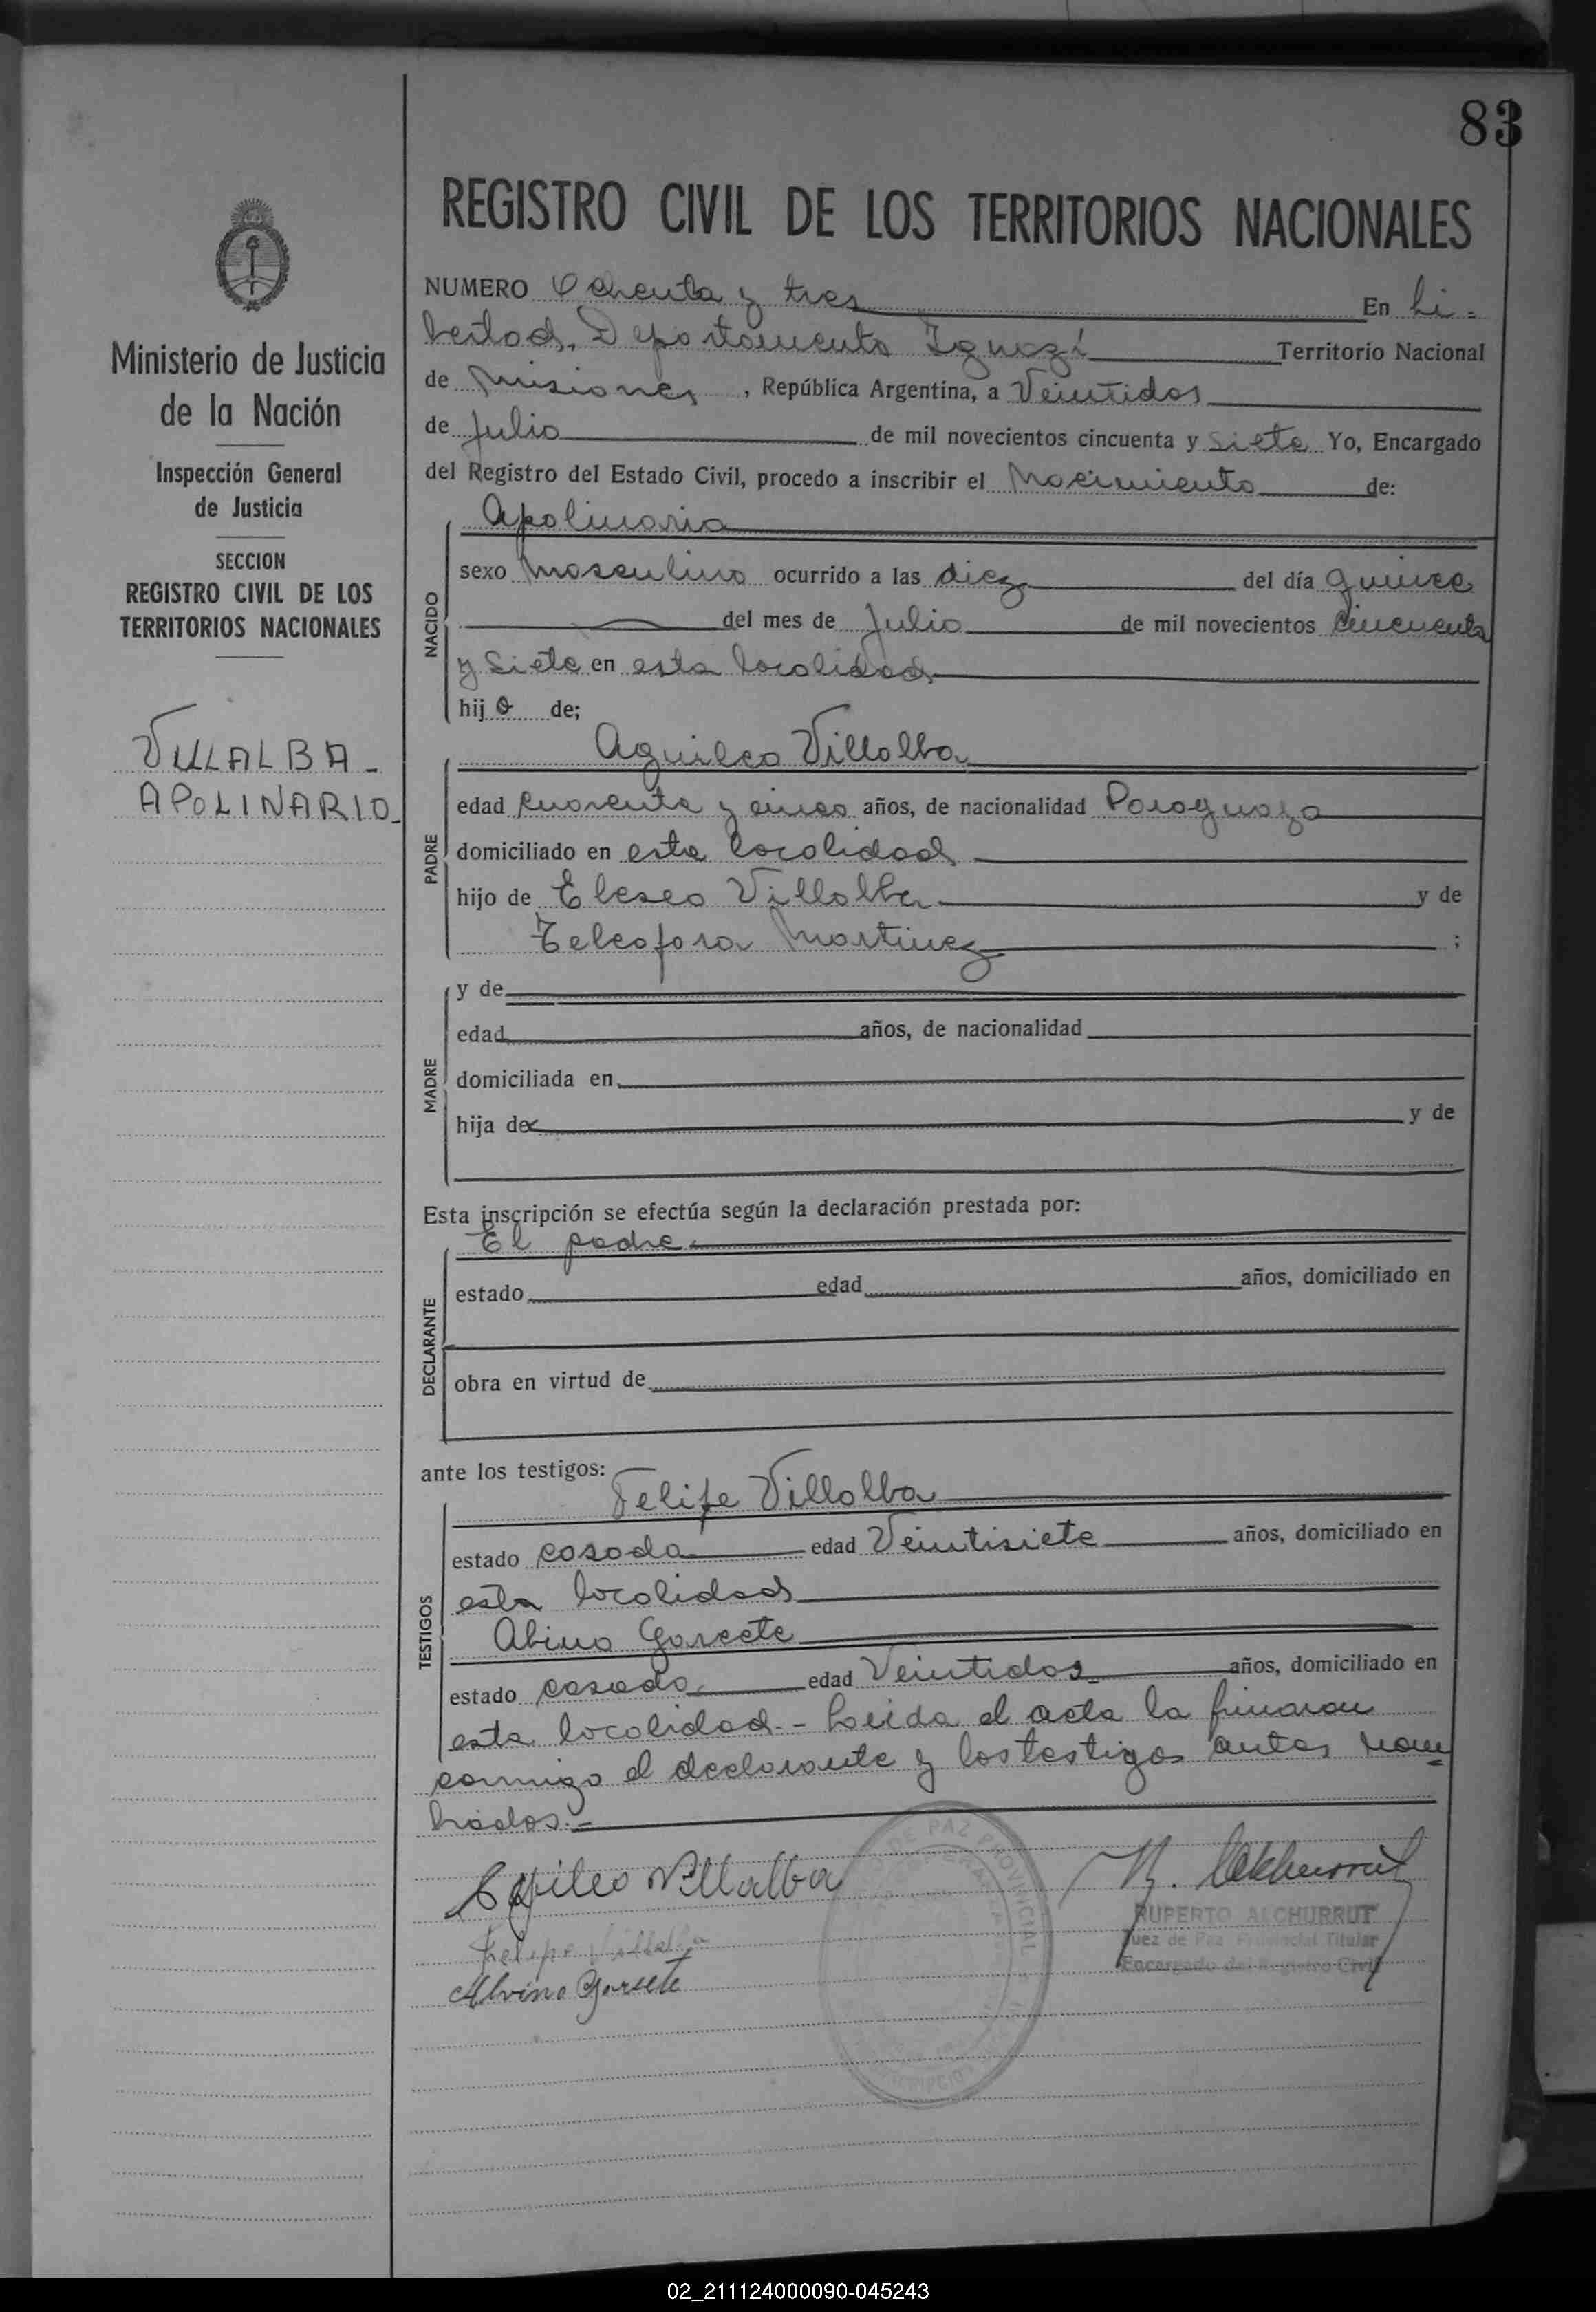 83
REGISTRO CIVIL DE LOS TERRITORIOS NACIONALES
Ministerio de Justicia
de la Nación
Inspección General
de Justicia
SECCION
REGISTRO CIVIL DE LOS
TERRITORIOS NACIONALES
VILLALBA -
APOLINARIO_
NUMERO Ochenta y tres En Li-
bertad, Departamento Iguazú Territorio Nacional
de Misiones, República Argentina, a Veintidos
de Julio de mil novecientos cincuenta y siete Yo, Encargado
del Registro del Estado Civil, procedo a inscribir el Nacimiento de:
Apolinario
NACIDO
sexo Masculino ocurrido a las diez del día quince
del mes de Julio de mil novecientos cincuenta
y siete en esta localidad
hijo de;
PADRE
Aguileo Villalba
edad cuarenta y cinco años, de nacionalidad Paraguaya
domiciliado en esta localidad
hijo de Eleseo Villalba y de
Teleofora Martinez ;
MADRE
y de
edad años, de nacionalidad
domiciliada en
hija de y de
Esta inscripción se efectúa según la declaración prestada por:
El padre
DECLARANTE
estado edad años, domiciliado en
obra en virtud de
ante los testigos:
Felipe Villalba
TESTIGOS
estado casado edad Veintisiete años, domiciliado en
esta localidad
Albino Garcete
estado casado edad Veintidos años, domiciliado en
esta localidad.- Leida el acta la firmaron
conmigo el declarante y los testigos antes nom=
brados.-
Villalba
Felipe Villalba
Alvino Garsete
RUPERTO ALCHURRUT
Juez de Paz Provincial Titular
Encargado del Registro Civil
DE PAZ PROVINCIAL
02_211124000090-045243